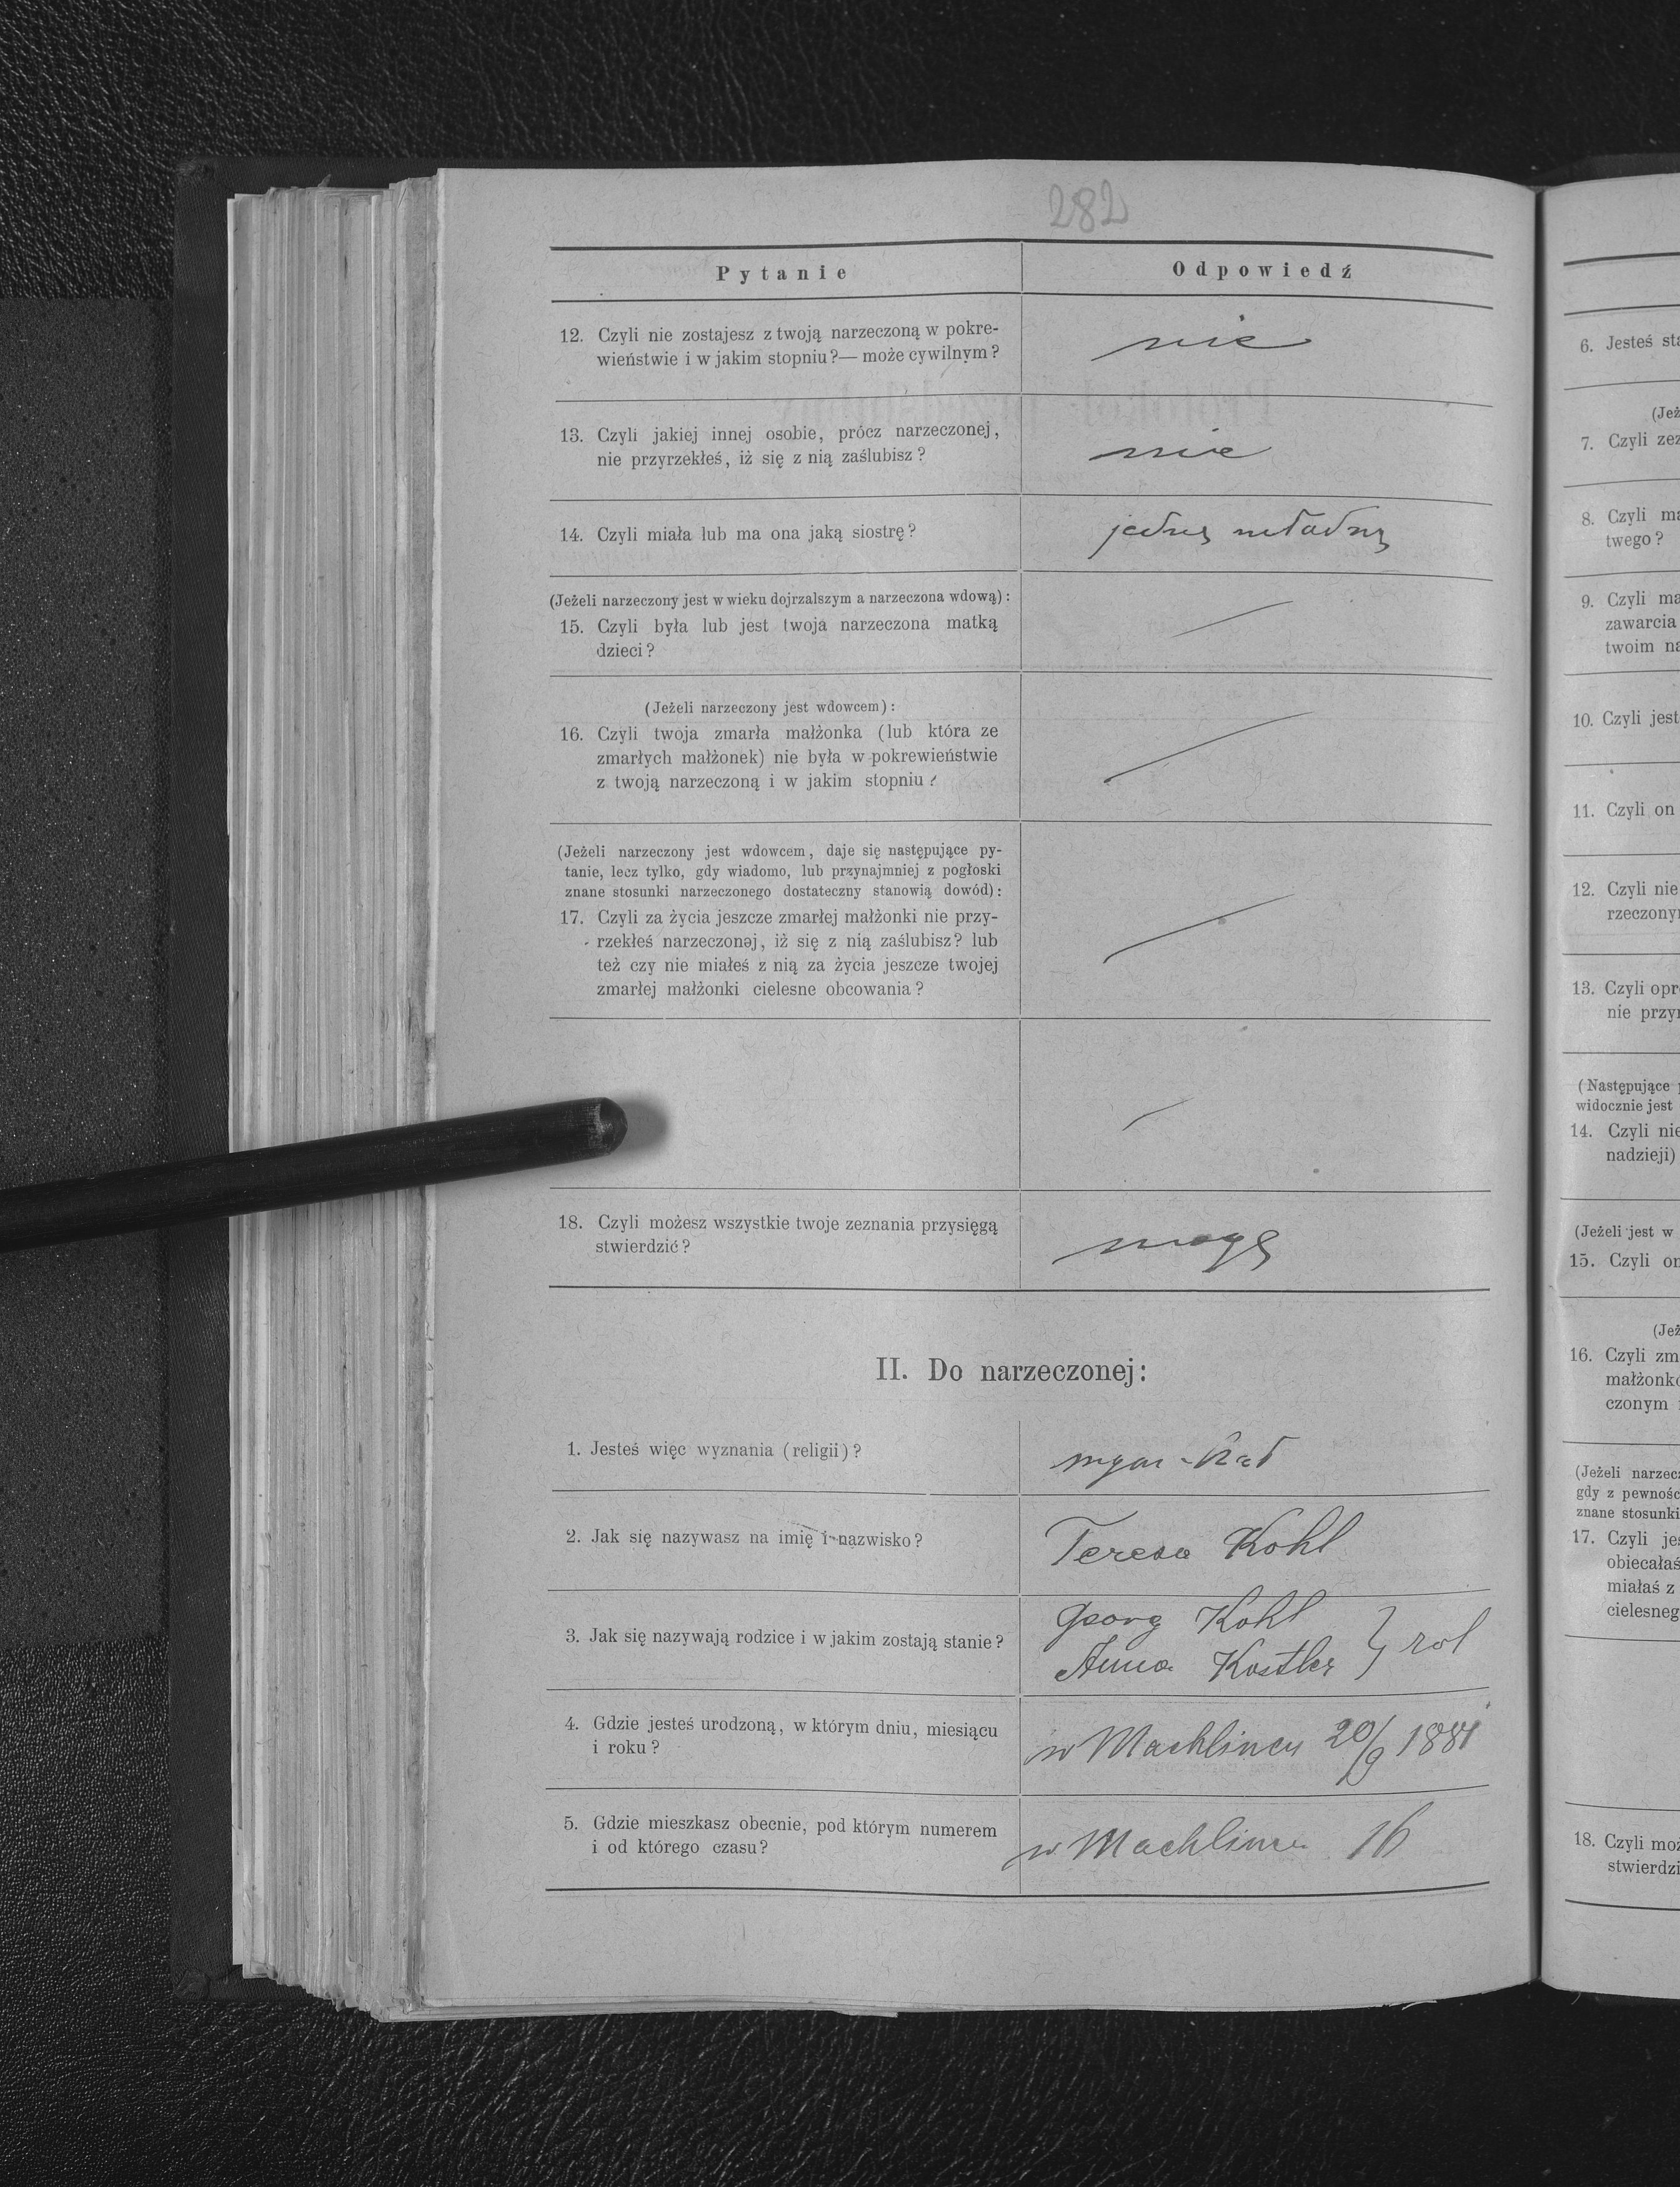 282
Pytanie
Odpowiedź
12. Czyli nie zostajesz z twoją narzeczoną w pokre-
wieństwie i w jakim stopniu?— może cywilnym?
nie
13. Czyli jakiej innej osobie, prócz narzeczonej,
nie przyrzekłeś, iż się z nią zaślubisz?
nie
14. Czyli miała lub ma ona jaką siostrę?
jedną
(Jeżeli narzeczony jest w wieku dojrzalszym a narzeczona wdową):
15. Czyli była lub jest twoja narzeczona matką
dzieci?
(Jeżeli narzeczony jest wdowcem):
16. Czyli twoja zmarła małżonka (lub która ze
zmarłych małżonek) nie była w pokrewieństwie
z twoją narzeczoną i w jakim stopniu?
(Jeżeli narzeczony jest wdowcem, daje się następujące py-
tanie, lecz tylko, gdy wiadomo, lub przynajmniej z pogłoski
znane stosunki narzeczonego dostateczny stanowią dowód):
17. Czyli za życia jeszcze zmarłej małżonki nie przy-
rzekłeś narzeczonej, iż się z nią zaślubisz? lub
też czy nie miałeś z nią za życia jeszcze twojej
zmarłej małżonki cielesne obcowania?
18. Czyli możesz wszystkie twoje zeznania przysięgą
stwierdzić?
mogę
II. Do narzeczonej:
1. Jesteś więc wyznania (religii)?
2. Jak się nazywasz na imię i nazwisko?
Teresa Kohl
3. Jak się nazywają rodzice i w jakim zostają stanie?
Georg Kohl
Anna Kostler } rol
4. Gdzie jesteś urodzoną, w którym dniu, miesiącu
i roku?
w Machlincu 20/9 1881
5. Gdzie mieszkasz obecnie, pod którym numerem
i od którego czasu?
w 16
6. Jesteś sta
(Jeż
7. Czyli zez
8. Czyli ma
twego?
9. Czyli ma
zawarcia
twoim na
10. Czyli jest
11. Czyli on
12. Czyli nie
rzeczony
13. Czyli opr
nie przy
(Następujące
widocznie jest
14. Czyli nie
nadzieji)
(Jeżeli jest w
15. Czyli on
(Jeż
16. Czyli zm
małżonk
czonym
(Jeżeli narzec
gdy z pewnośc
znane stosunki
17. Czyli je
obiecałaś
miałaś z
cielesneg
18. Czyli moż
stwierdzi